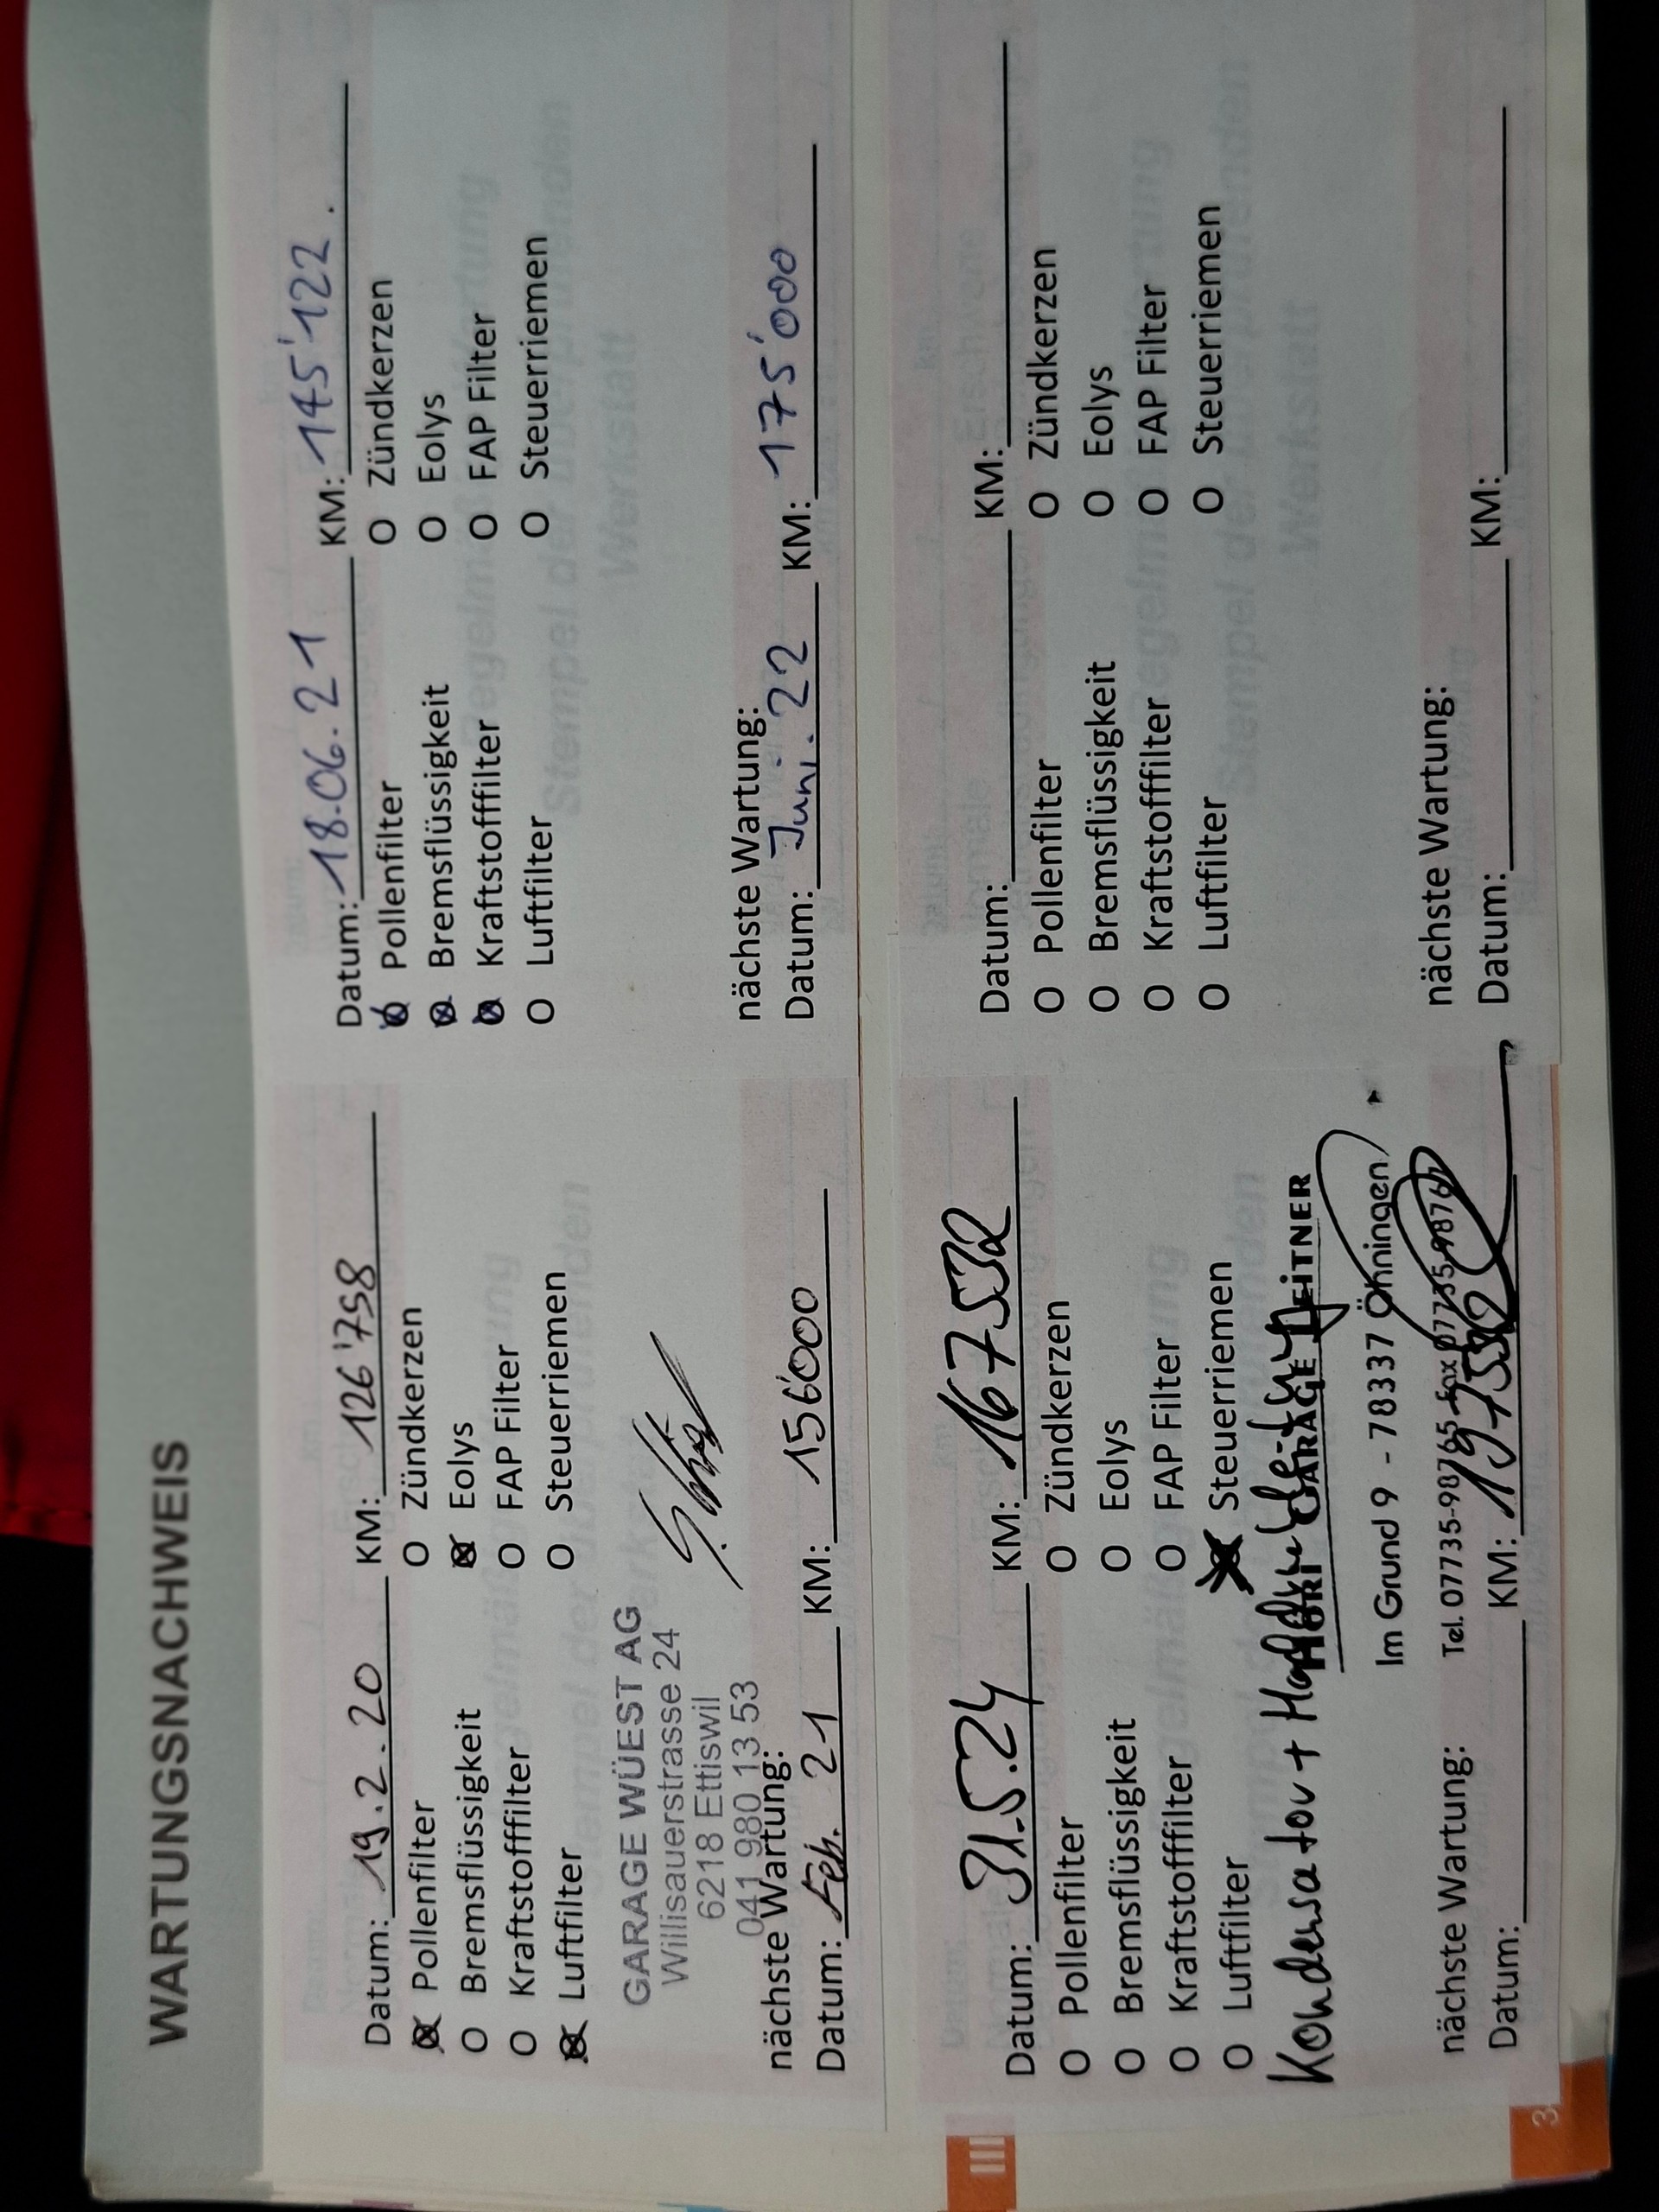 WARTUNGSNACHWEIS
Datum: 19.2.20 KM: 126'758
Pollenfilter O Zündkerzen
O Bremsflüssigkeit Eolys
O Kraftstofffilter O FAP Filter
Luftfilter O Steuerriemen
GARAGE WÜEST AG
Willisauerstrasse 24
6218 Ettiswil
041 980 13 53
nächste Wartung:
Datum: Feb. 21 KM: 156'000
Datum: 18.06.21 KM: 145'122.
Pollenfilter O Zündkerzen
Bremsflüssigkeit O Eolys
Kraftstofffilter O FAP Filter
O Luftfilter O Steuerriemen
nächste Wartung:
Datum: Juni. 22 KM: 175'000
Datum: 31.5.24 KM: 167532
O Pollenfilter O Zündkerzen
O Bremsflüssigkeit O Eolys
O Kraftstofffilter O FAP Filter
O Luftfilter Steuerriemen
Kondensator +
HÖRI GARAGE LEITNER
Im Grund 9 - 78337 Öhningen
Tel. 07735-98765 Fax 07735-98767
nächste Wartung:
Datum: KM: 197532
Datum: KM:
O Pollenfilter O Zündkerzen
O Bremsflüssigkeit O Eolys
O Kraftstofffilter O FAP Filter
O Luftfilter O Steuerriemen
nächste Wartung:
Datum: KM:
III
3